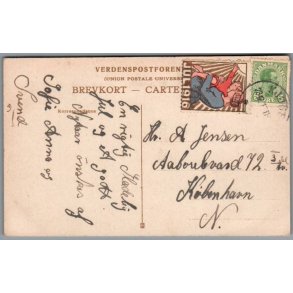 VERDENSPOSTFOREN
(UNION POSTALE UNIVERS
BREVKORT - CARTE
JUL 1916
DANMARK
En rigtig Glædelig
Jul og A godt
Nytaar ønskes af
Sofie Anna og
Svend
Hr. A Jensen
Aaboulevard 72 3
København
N.